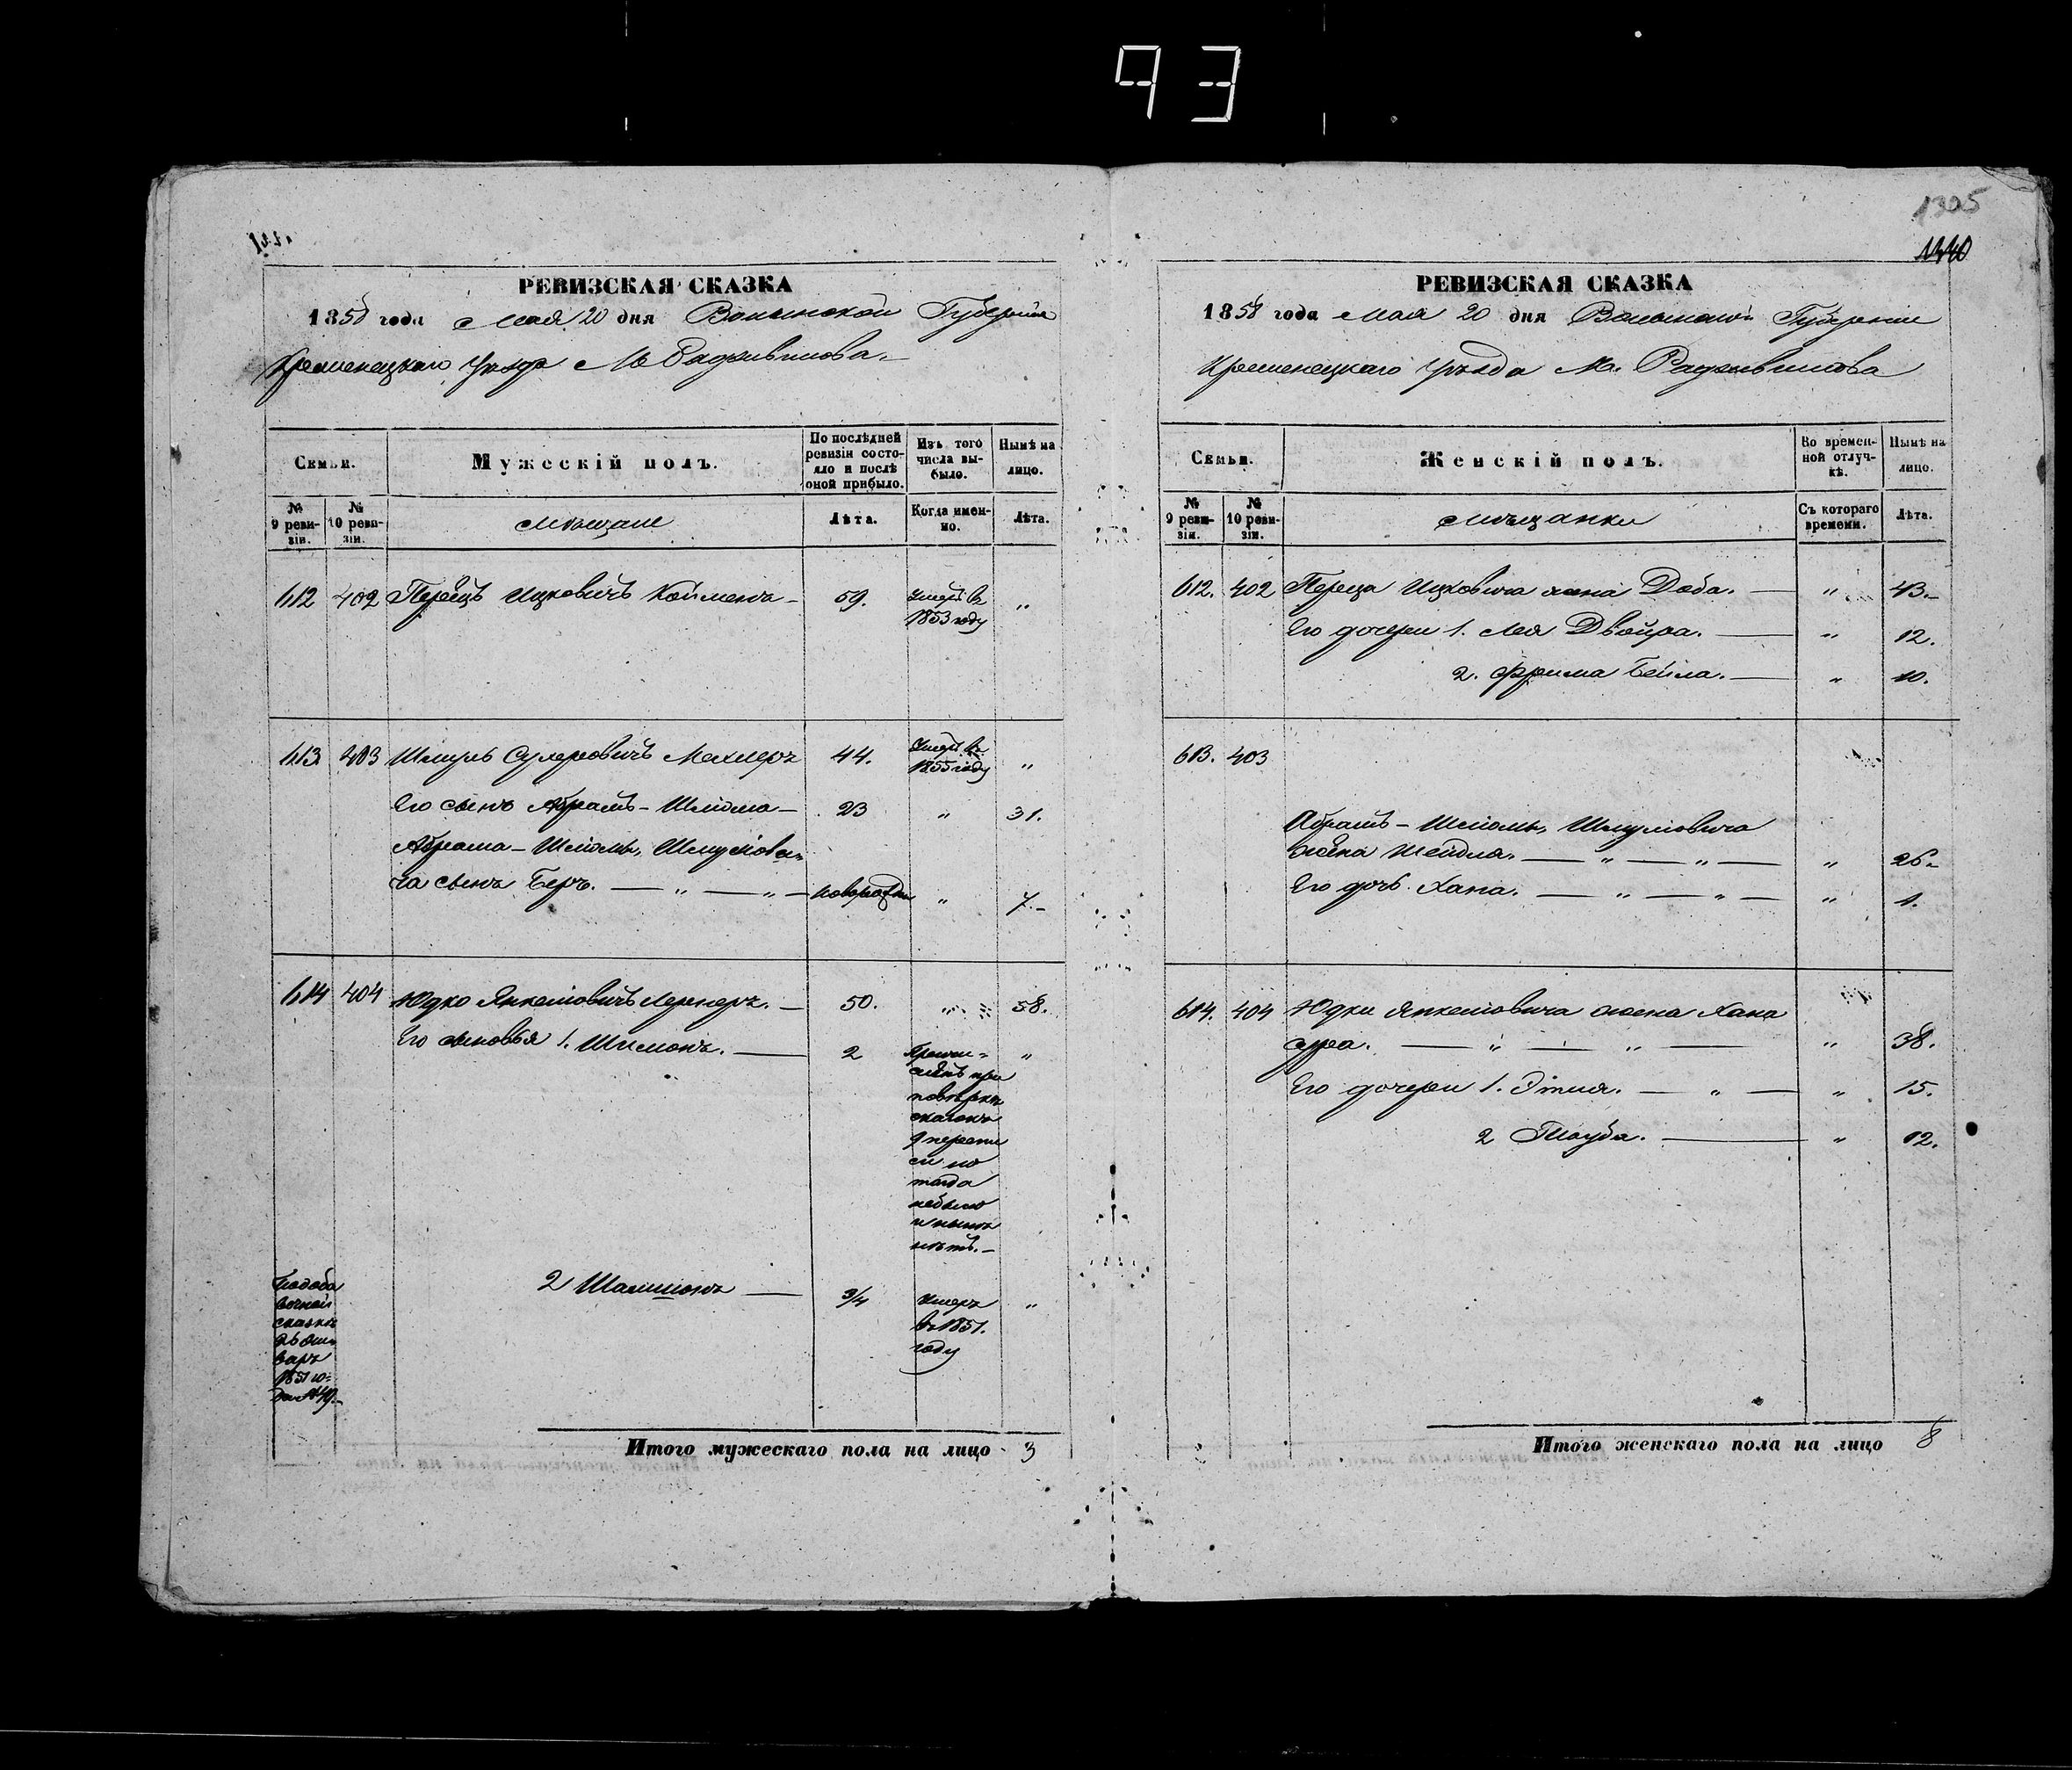 93
1305
1440
РЕВИЗСКАЯ СКАЗКА
1858 года Мая 20 дня Волынской Губернiи
Кременецкаго Уезда М. Радзивилова.
Семьи.
Мужескiй полъ.
По послѣдней ревизiи состояло и послѣ оной прибыло.
Изъ того числа выбыло.
Нынѣ на лицо.
№ 9 ревизiи.
№ 10 ревизiи.
Мѣщане
Лѣта.
Когда именно.
Лѣта.
612 402 Перецъ Ицковичъ 59. умеръ въ 1853 году „
613. 403 Шмуль Сухеровичъ Мехлеръ 44. умеръ въ 1855 году „
Его сынъ Абрамъ-Шлiома- 23 „ 31.
Абрама-Шлiомы Шмулiова-
ча сынъ Беръ. — „ — „ — новорожден „ 7.-
614 404 Юдко Янкелiовичъ Лернеръ. — 50. „ 58.
Его сыновья 1. Шимонъ. — 2 „
Причи-
сленъ при
повѣркѣ
сказокъ
9 перепи
си но
тогда
небыло
и нынѣ
нѣтъ.-
2 Шлiомонъ — 3/4 умеръ въ 1851. году „
По доба
вочной
сказкѣ
26 Ян
варя
1851 го-
да № 49.-
Итого мужескаго пола на лицо 3
РЕВИЗСКАЯ СКАЗКА
1858 года Мая 20 дня Волынской Губернiи
Кременецкаго Уѣзда М. Радзивилова
Семьи.
Женскiй полъ.
Во временной отлучкѣ.
Нынѣ на лицо.
№ 9 ревизiи.
№ 10 ревизiи.
Мѣщанки
Съ котораго времени.
Лѣта.
612. 402 Переца Ицковича жена Доба. — „ 43.-
Его дочери 1. Лея Двойра. — „ 12.
2. Фрима Бейла. — „ 10.
613. 403
Абрамъ-Шлiомы Шмулiовича
жена Шейдля. — „ — „ — „ 26.
Его дочь Хана. — „ — „ — „ 1.
614. 404 Юдки Янкелiовича жена Хана
сура. — „ — „ — „ 38.
Его дочери 1. Этля. — „ — „ 15.
2 Тауба. — „ 12.
Итого женскаго пола на лицо 8